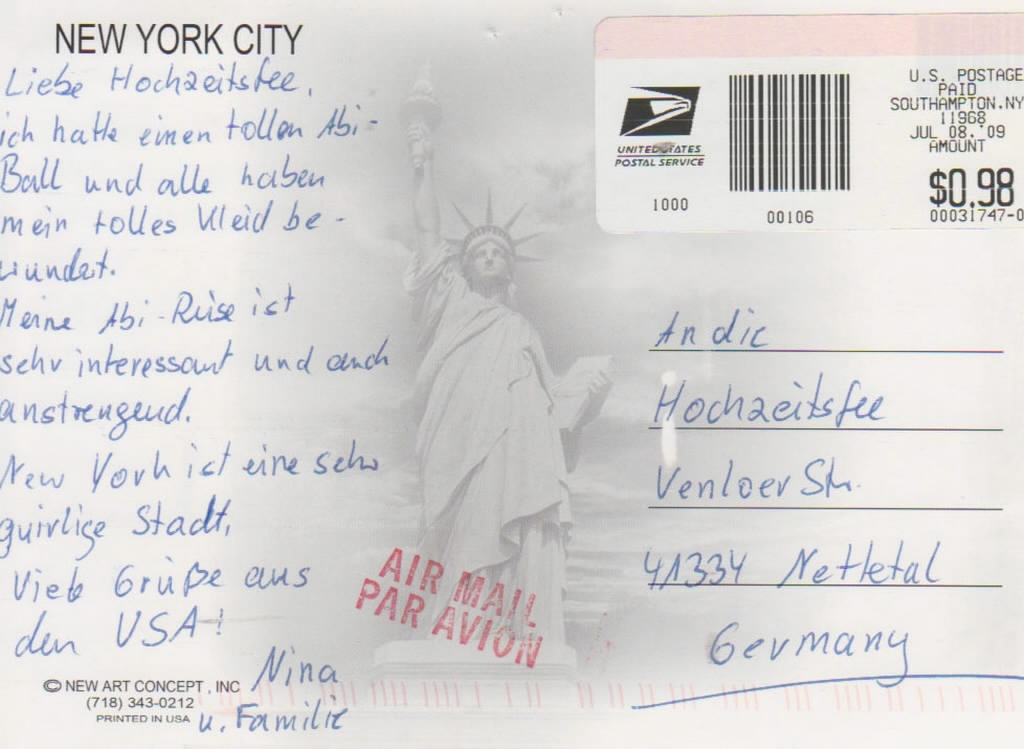 NEW YORK CITY
Liebe Hochzeitsfee,
ich hatte einen tollen Abi-
Ball und alle haben
mein tolles Kleid be-
wundert.
Meine Abi-Reise ist
sehr interessant und auch
anstrengend.
New York ist eine sehr
quirlige Stadt,
Viele Grüße aus
den USA!
Nina
u. Familie
© NEW ART CONCEPT, INC
(718) 343-0212
PRINTED IN USA
AIR MAIL
PAR AVION
UNITED STATES
POSTAL SERVICE
1000
00106
U.S. POSTAGE
PAID
SOUTHAMPTON.NY
11968
JUL 08.'09
AMOUNT
$0.98
00031747-0
An die
Hochzeitsfee
Venloer Str.
41334 Nettetal
Germany